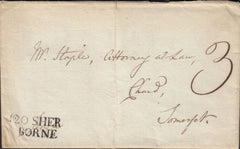 Mr. Staple, Attorney at Law,
3
Chard,
Somerset.
120 SHER
BORNE